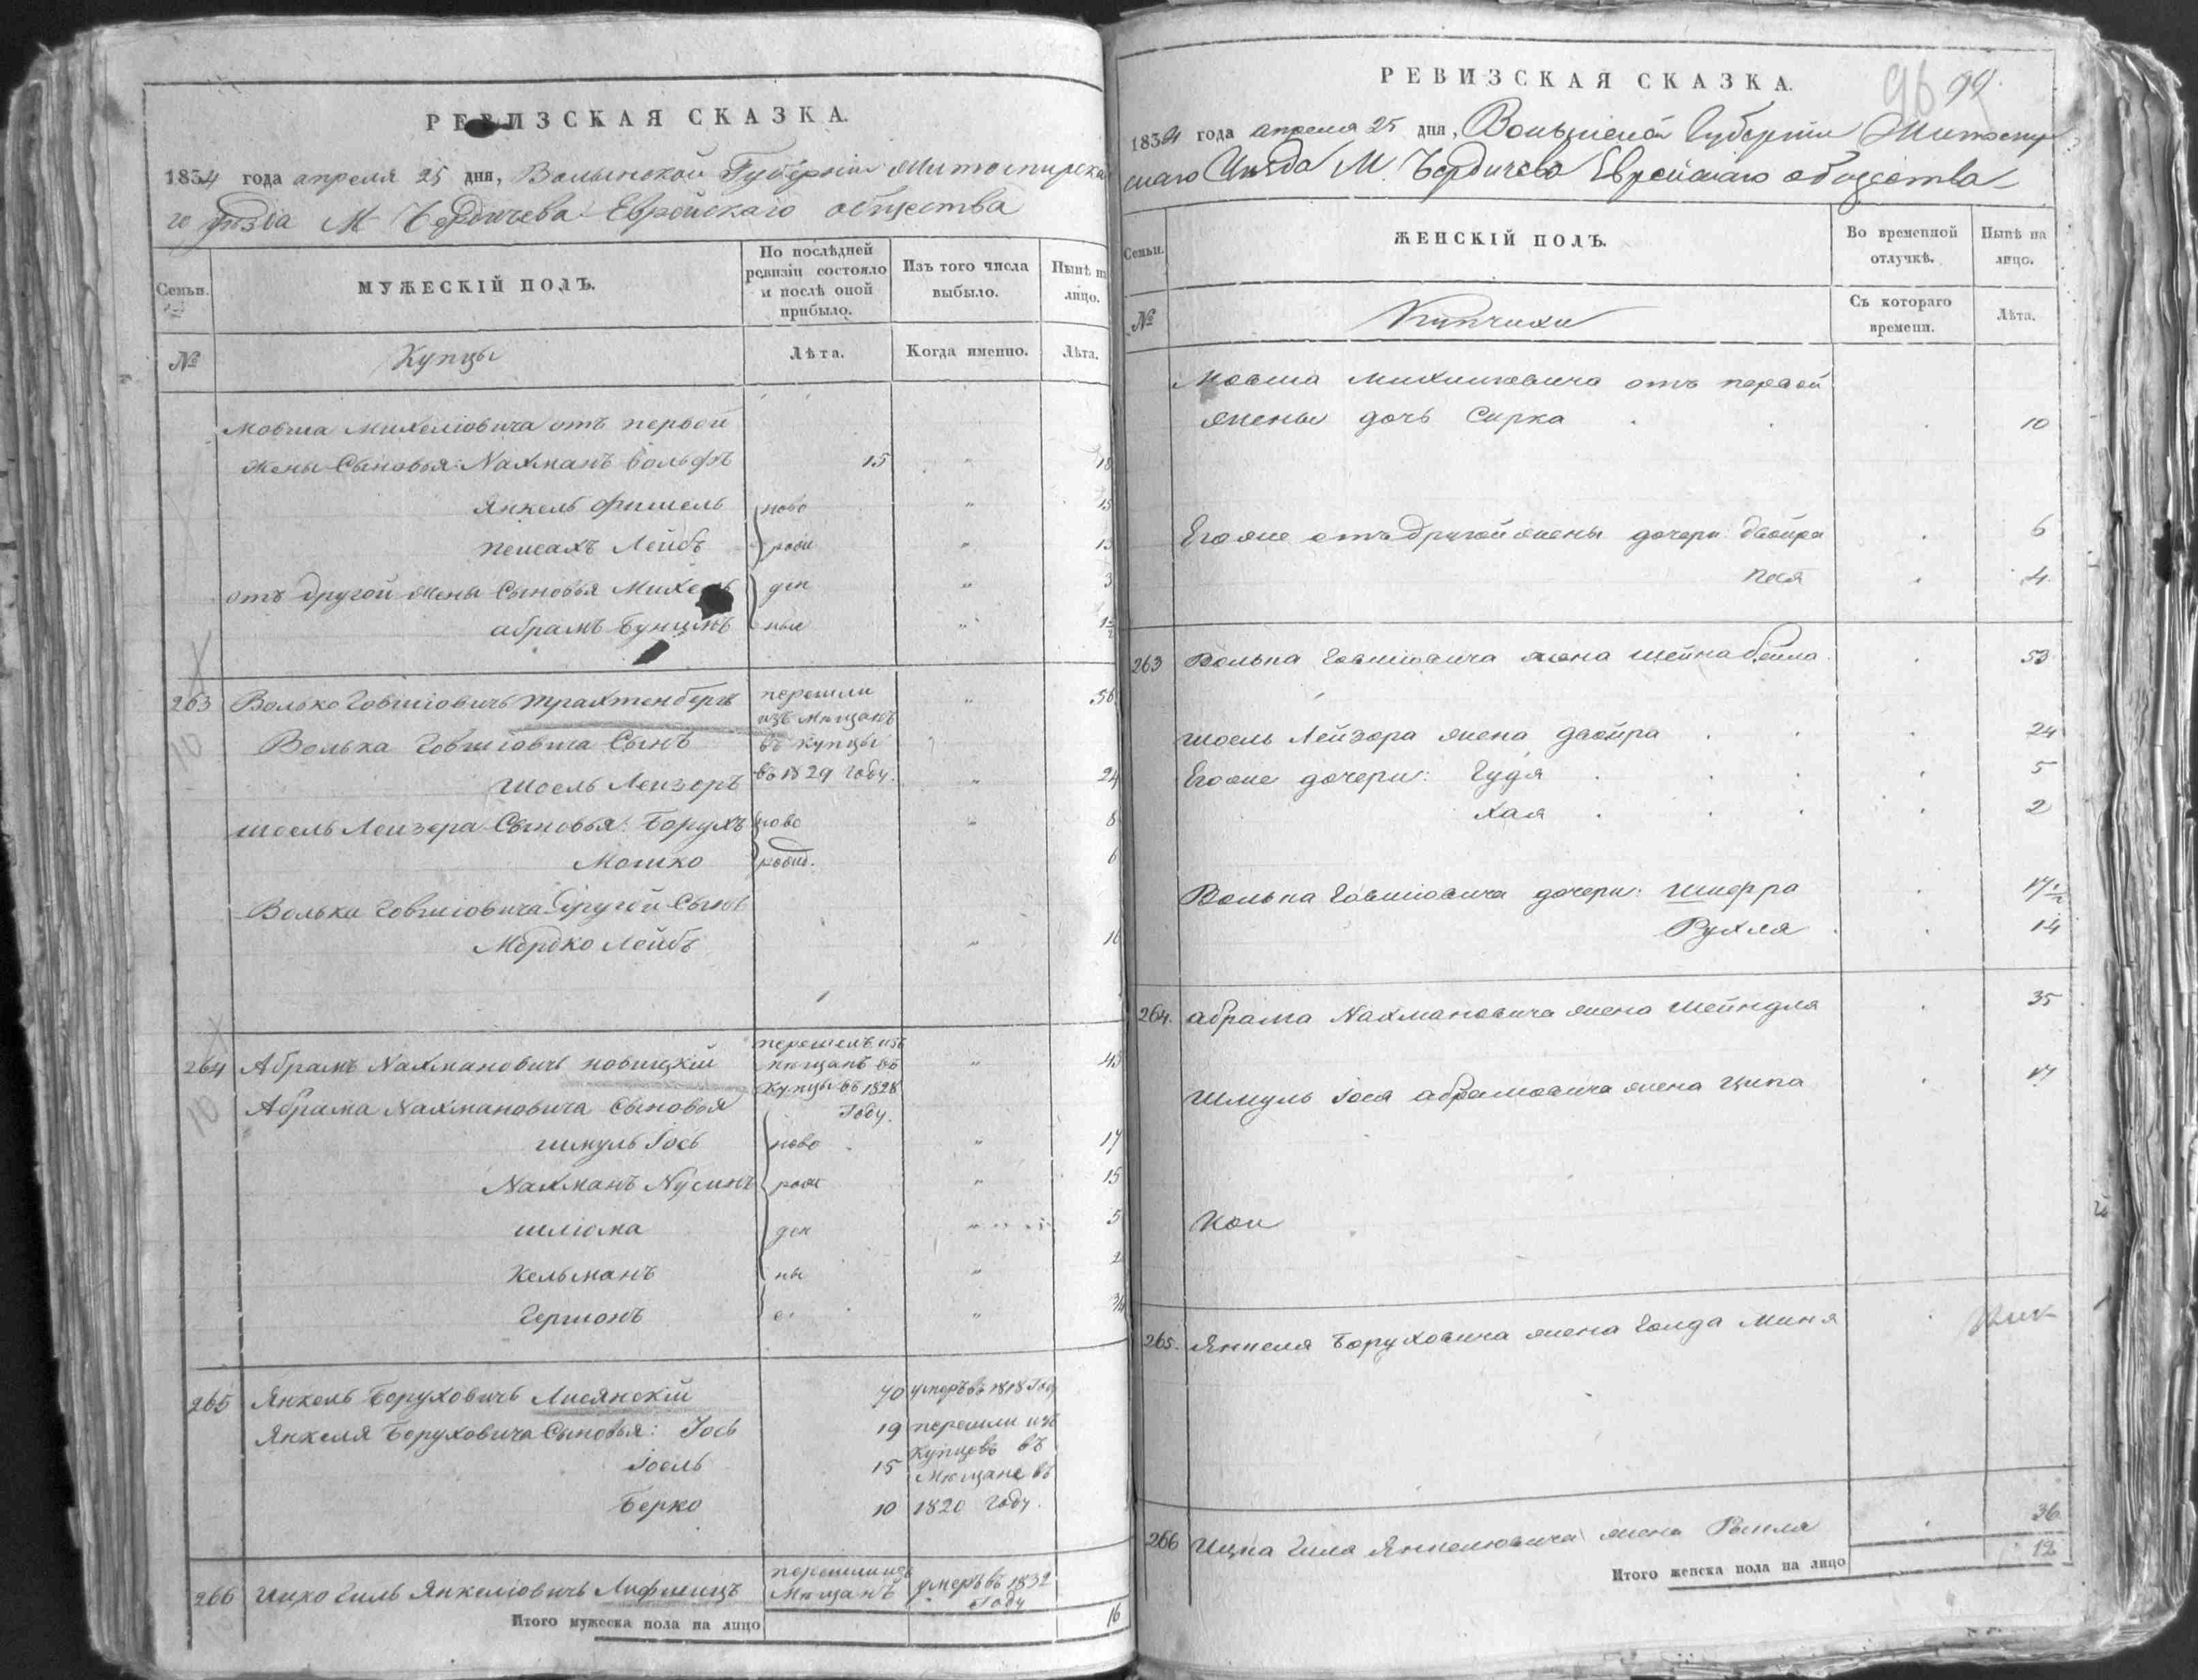 РЕВИЗСКАЯ СКАЗКА.
1834 года апреля 25 дня, Волынской Губерніи Житомирска
го уѣзда М. Бердичева Еврейскаго общества
Семьи.
МУЖЕСКІЙ ПОЛЪ.
По послѣдней ревизіи состояло и послѣ оной прибыло.
Изъ того числа выбыло.
Нынѣ на лицо.
№
Купцы
Лѣта.
Когда именно.
Лѣта.
Мовша Михеліовича отъ первой
жены Сыновья: Нахманъ Вольфъ 15 " 18
Янкель Фишель ново "
Пейсахъ Лейбъ рож "
отъ другой жены Сыновья Михель ден " 3
абрамъ Бунцинъ ные "
263 Волько Говшіовичь Трахтенбергъ перешли " 56
изъ мѣщанъ
Волька Говшіовича Сынъ въ купцы
Шоель Лейзоръ въ 1829 году. " 24
Шоель Лейзера Сыновья: Борухъ ново " 8
Мошко рожд. 6
Вольки Говшіовича другой Сынъ
Мордко Лейбъ " 16
264 Абрамъ Нахмановичь новицкій перешелъ изъ мѣщанъ въ " 43
купцы въ 1828
Абрама Нахмановича Сыновья году.
шмуль Іось ново " 17
Нахманъ Нусинъ рож " 15
шліома ден " 5
Кельманъ ны " 2
Гершонъ е "
265 Янкель Боруховичь Лисянскій 70 умеръ въ 1818 году
Янкеля Боруховича Сыновья: Іось 19 перешли изъ
купцовъ въ
Іоель 15 мѣщане въ
Берко 10 1820 году.
266 Ицко Гиль Янкеліовичь Лифшицъ перешли изъ мѣщанъ умеръ въ 1832 году
Итого мужеска пола на лицо 16
РЕВИЗСКАЯ СКАЗКА.
96 99.
1834 года апреля 25 дня, Волынской Губерніи Житомир
скаго Уѣзда М. Бердичева Еврейскаго общества
Семьи.
ЖЕНСКІЙ ПОЛЪ.
Во временной отлучкѣ.
Нынѣ на лицо.
№
Купчихи
Съ котораго времени.
Лѣта.
Мовша Михеліовича отъ первой
жены дочь Сирка 10
Его же отъ другой жены дочери: Двойра 6
Песя 4
263 Волька Говшіовича жена Шейна бейла 53
Шоель Лейзора жена двойра 24
Его же дочери: Гудя 5
Хая 2
Волька Говшіовича дочери: Шифра 17 1/2
Рухля 14
264. абрама Нахмановича жена Шейндля 35
Шмуль Іося абрамовича жена Ципа 17
265. Янкеля Боруховича жена Голда Миня
266 Ицка Гиля Янкеліовича жена Рыкля 36
Итого женска пола на лицо 12